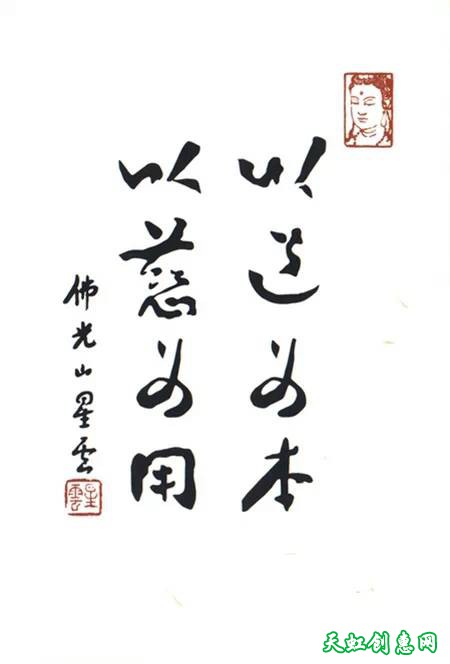 以道为本
以慈为用
佛光山星雲
星雲
天虹创意网